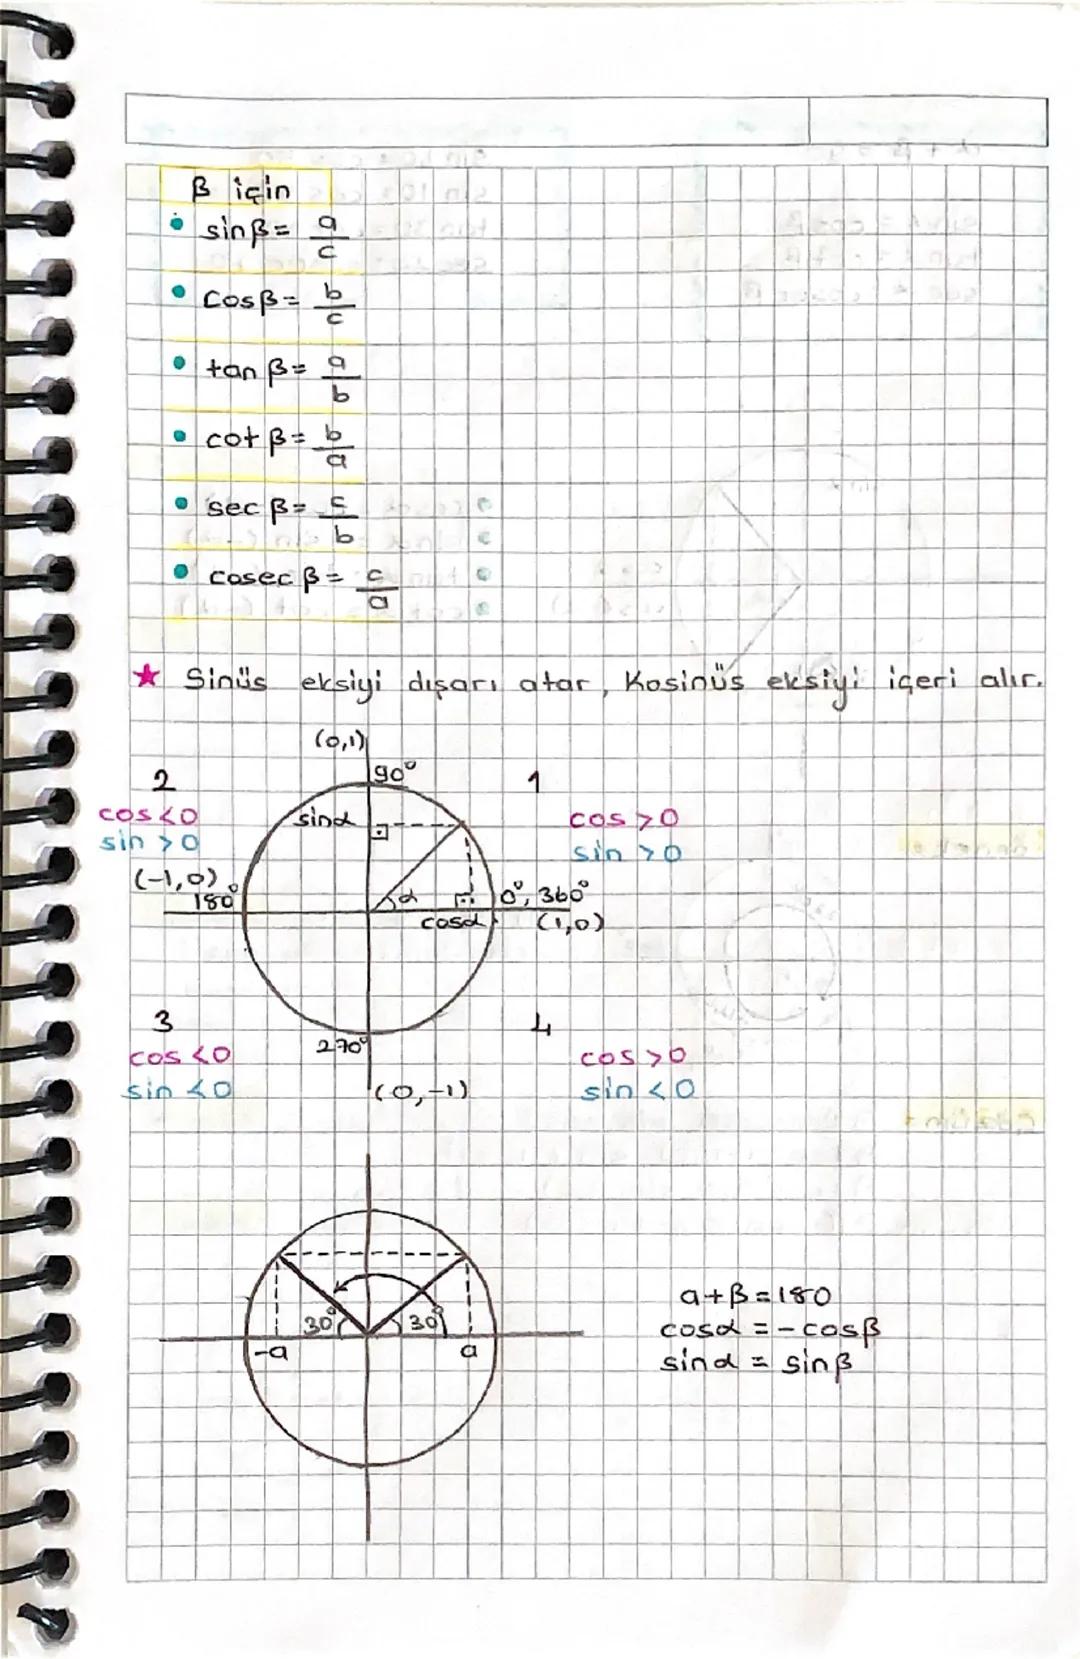 β için
sinβ = a/c
Cosβ = b/c
tan β = a/b
cot β = b/a
sec β = c/b
cosec β = c/a
★ Sinüs eksiyi dışarı atar, Kosinüs eksiyi içeri alır.
(0,1)
90°
2
1
cos <0
sin >0
sinα
cos >0
sin >0
(-1,0)
180°
α
0°, 360°
cosα
(1,0)
3
4
cos <0
sin <0
270°
(0,-1)
cos >0
sin <0
30°
30°
-a
a
a+β=180
cosα = -cosβ
sinα = sinβ